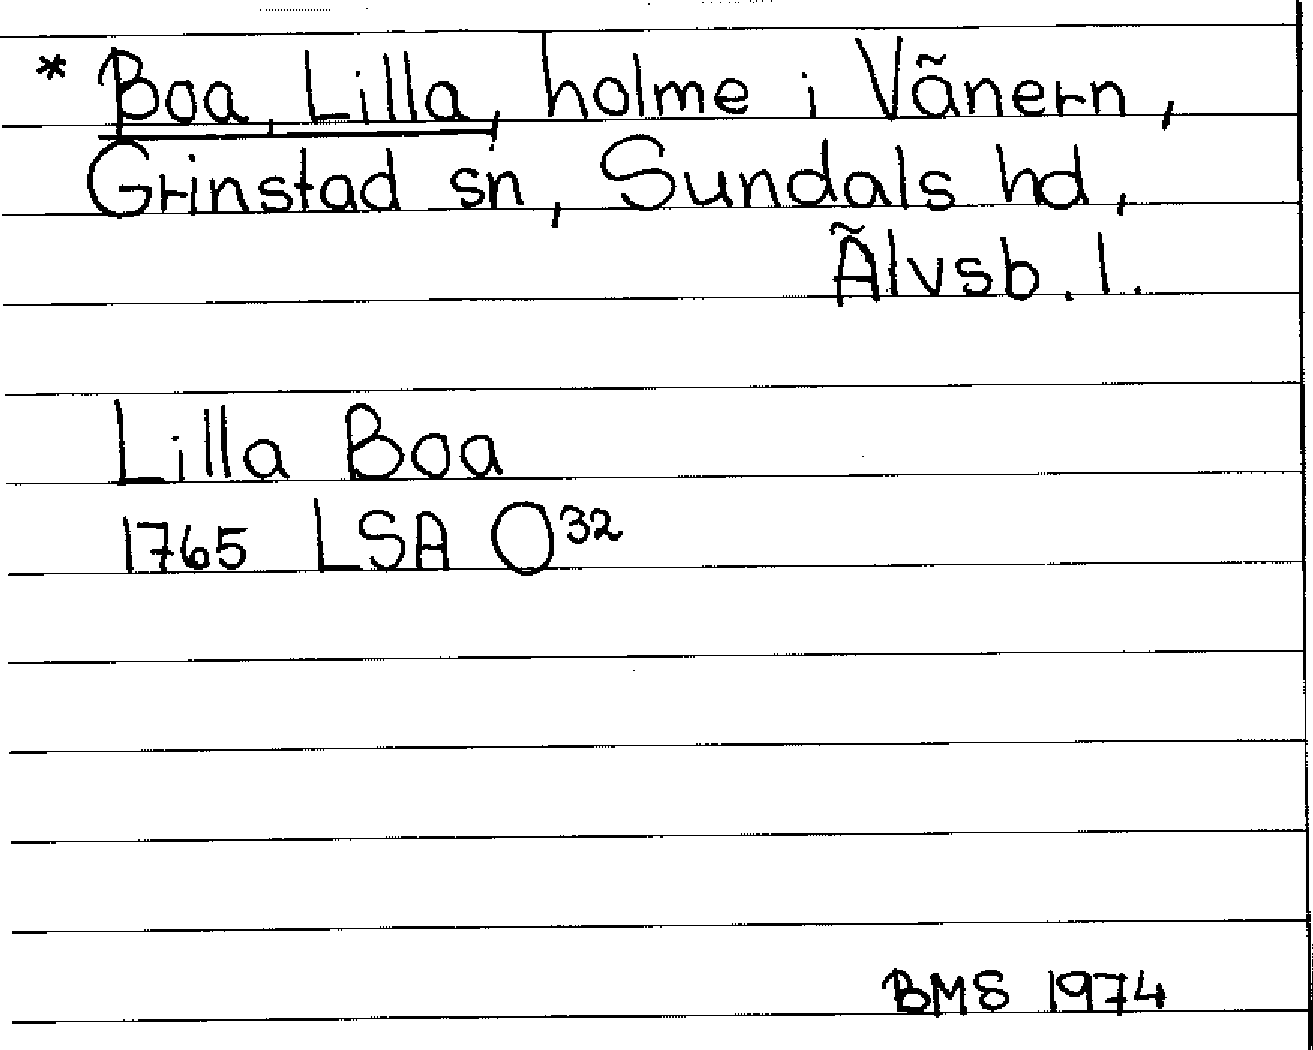 * Boa, Lilla, holme i Vänern,
Grinstad sn, Sundals hd,
Älvsb. l.
Lilla Boa
1765 LSA O³²
BMS 1974